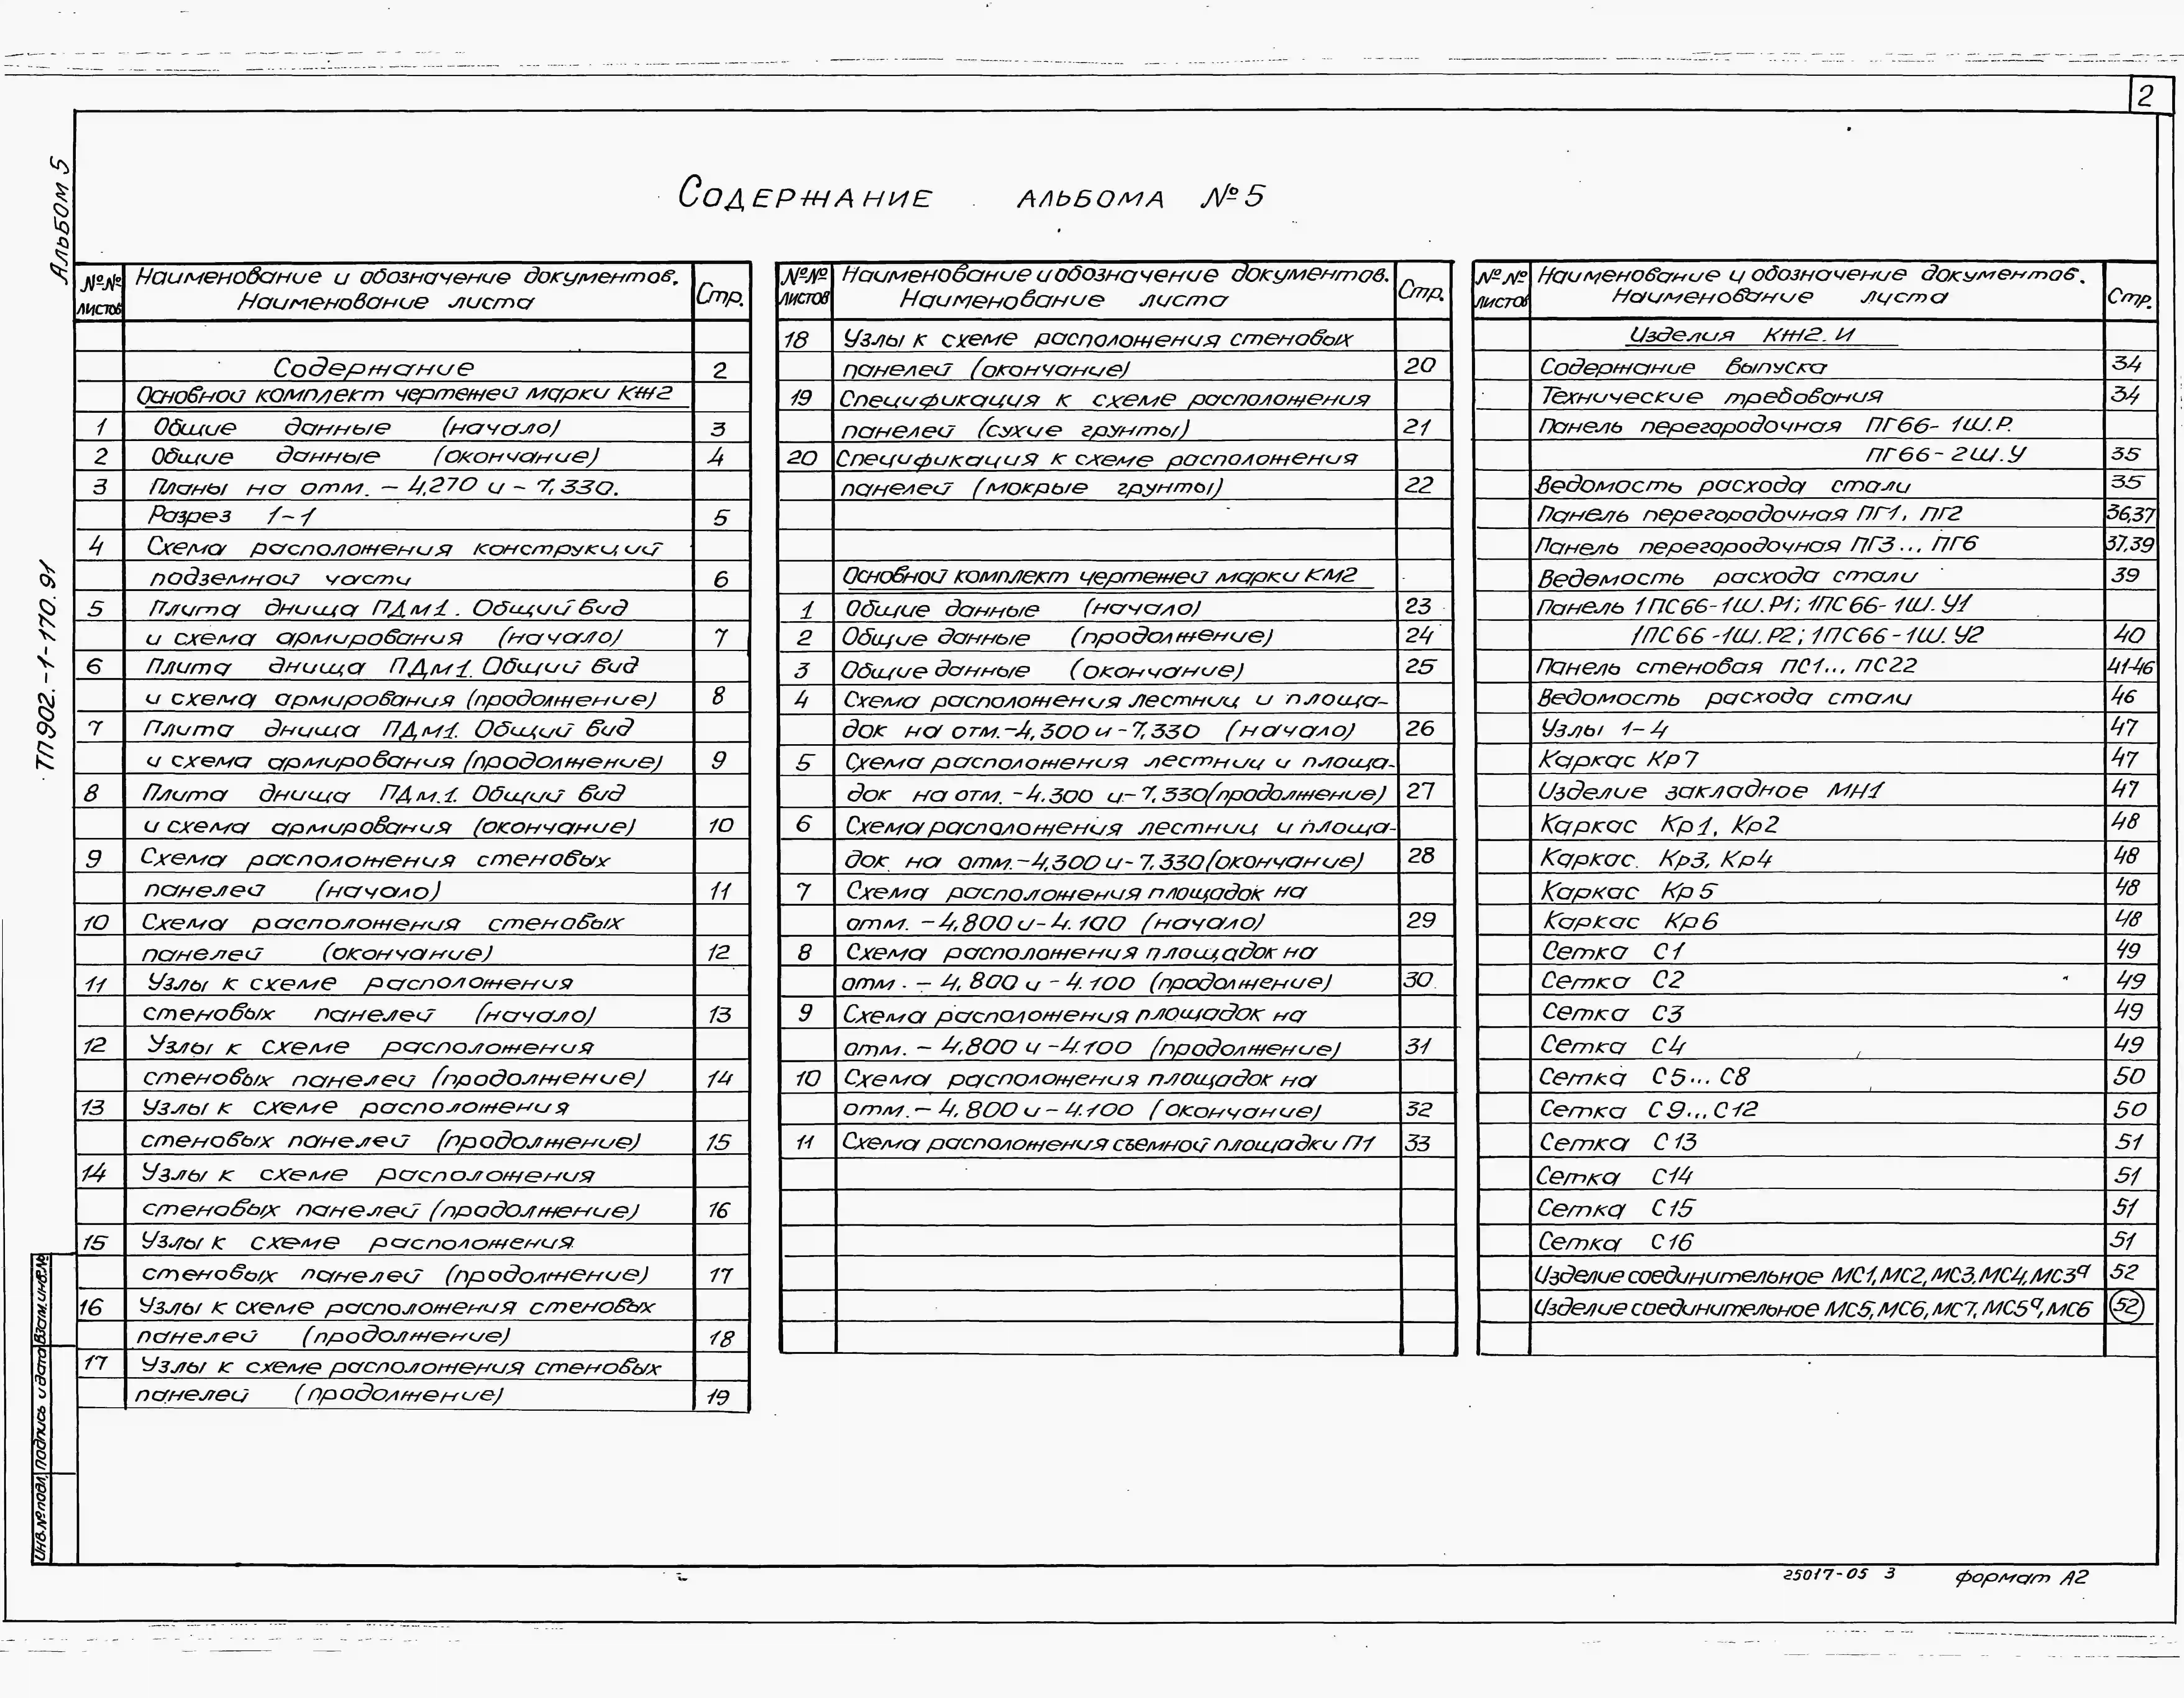 2
Альбом 5
ТП902.-1-170.91
Содержание альбома №5
№№ листов Наименование и обозначение документов. Наименование листа Стр.
Содержание 2
Основной комплект чертежей марки КЖ2
1 Общие данные (начало) 3
2 Общие данные (окончание) 4
3 Планы на отм. – 4,270 и – 7,330.
Разрез 1-1 5
4 Схема расположения конструкций
подземной части 6
5 Плита днища ПДм1. Общий вид
и схема армирования (начало) 7
6 Плита днища ПДм1. Общий вид
и схема армирования (продолжение) 8
7 Плита днища ПДм1. Общий вид
и схема армирования (продолжение) 9
8 Плита днища ПДм.1. Общий вид
и схема армирования (окончание) 10
9 Схема расположения стеновых
панелей (начало) 11
10 Схема расположения стеновых
панелей (окончание) 12
11 Узлы к схеме расположения
стеновых панелей (начало) 13
12 Узлы к схеме расположения
стеновых панелей (продолжение) 14
13 Узлы к схеме расположения
стеновых панелей (продолжение) 15
14 Узлы к схеме расположения
стеновых панелей (продолжение) 16
15 Узлы к схеме расположения
стеновых панелей (продолжение) 17
16 Узлы к схеме расположения стеновых
панелей (продолжение) 18
17 Узлы к схеме расположения стеновых
панелей (продолжение) 19
№№ листов Наименование и обозначение документов. Наименование листа Стр.
18 Узлы к схеме расположения стеновых
панелей (окончание) 20
19 Спецификация к схеме расположения
панелей (сухие грунты) 21
20 Спецификация к схеме расположения
панелей (мокрые грунты) 22
Основной комплект чертежей марки КМ2
1 Общие данные (начало) 23
2 Общие данные (продолжение) 24
3 Общие данные (окончание) 25
4 Схема расположения лестниц и площа-
док на отм.-4,300 и -7,330 (начало) 26
5 Схема расположения лестниц и площа-
док на отм. -4.300 и-7,330(продолжение) 27
6 Схема расположения лестниц и площа-
док на отм.-4,300 и-7.330(окончание) 28
7 Схема расположения площадок на
отм. -4,800 и-4.100 (начало) 29
8 Схема расположения площадок на
отм. – 4,800 и -4.100 (продолжение) 30
9 Схема расположения площадок на
отм. – 4.800 и -4.100 (продолжение) 31
10 Схема расположения площадок на
отм.– 4.800 и – 4.100 (окончание) 32
11 Схема расположения съемной площадки П1 33
№№ листов Наименование и обозначение документов. Наименование листа Стр.
Изделия КЖ2.И
Содержание выпуска 34
Технические требования 34
Панель перегородочная ПГ66- 1Ш.Р.
ПГ66-2Ш.У 35
Ведомость расхода стали 35
Панель перегородочная ПГ1, ПГ2 36,37
Панель перегородочная ПГ3... ПГ6 37,39
Ведомость расхода стали 39
Панель 1ПС66-1Ш.Р1; 1ПС66-1Ш.У1
1ПС66-1Ш.Р2; 1ПС66-1Ш.У2 40
Панель стеновая ПС1... ПС22 41-46
Ведомость расхода стали 46
Узлы 1-4 47
Каркас Кр7 47
Изделие закладное МН1 47
Каркас Кр1, Кр2 48
Каркас. Кр3, Кр4 48
Каркас Кр5 48
Каркас Кр6 48
Сетка С1 49
Сетка С2 49
Сетка С3 49
Сетка С4 49
Сетка С5... С8 50
Сетка С9... С12 50
Сетка С13 51
Сетка С14 51
Сетка С15 51
Сетка С16 51
Изделие соединительное МС1,МС2,МС3,МС4,МС3ª 52
Изделие соединительное МС5,МС6,МС7,МС5ª,МС6 52
Инв.№подл. Подпись и дата Взам.инв.№
25017-05 3 формат А2